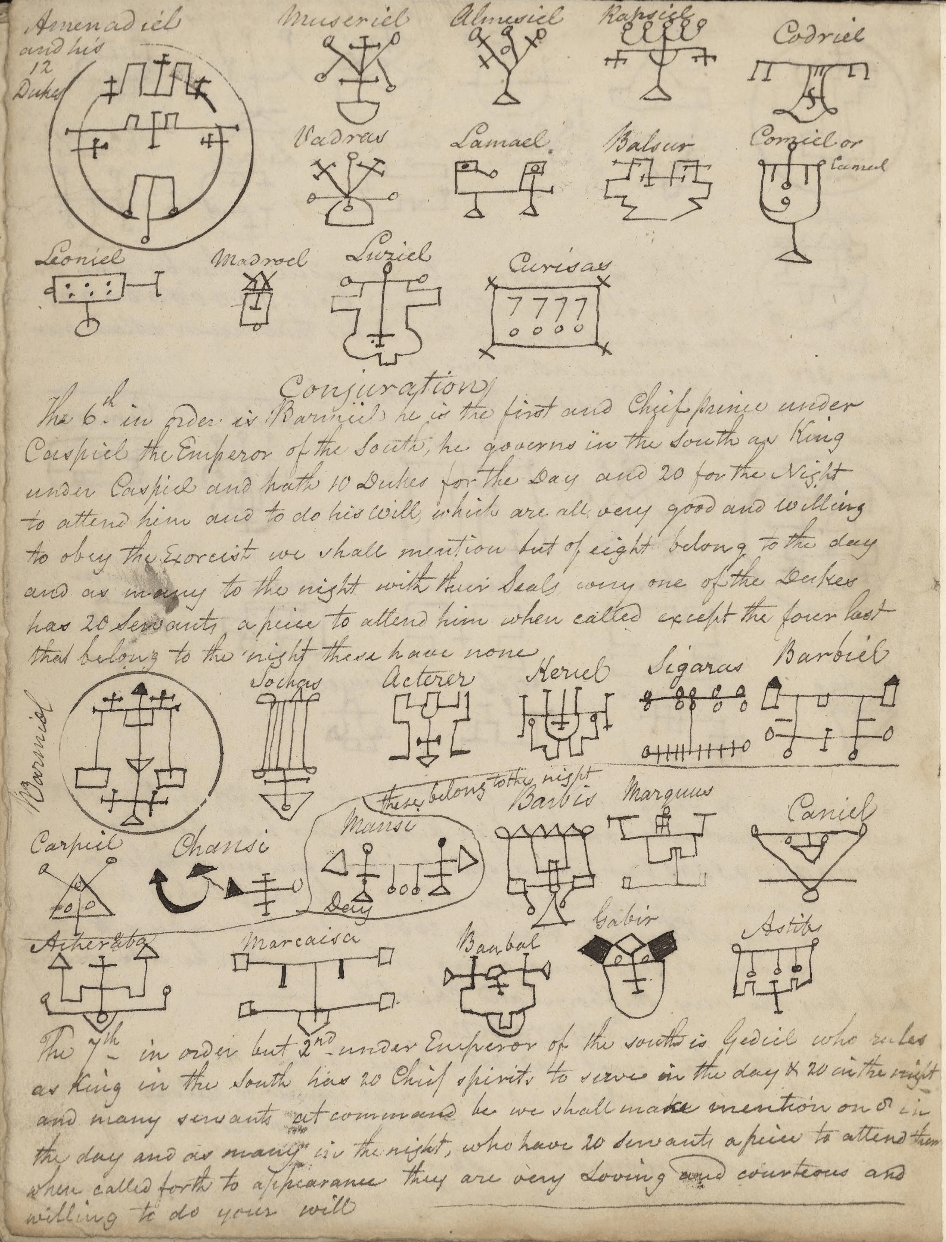 Amenadiel
and his
12
Dukes
Museriel
Almesiel
Rapsiel
Codriel
Vadras
Lamael
Balsur
Corziel or
Camel
Leoniel
Madroel
Luziel
Curisas
7777
Conjuration
The 6th in order is Barmiel he is the first and Chief prince under
Caspiel the Emperor of the South, he governs in the South as King
under Caspiel and hath 10 Dukes for the Day and 20 for the Night
to attend him and to do his Will, which are all very good and willing
to obey the Exorcist we shall mention but of eight belong to the day
and as many to the night with their Seals every one of the Dukes
has 20 Servants a piece to attend him when called except the four last
that belong to the night these have none
Barmiel
Sochas
Acterer
Keriel
Sigaras
Barbiel
these belong to the night
Carpiel
Chansi
Mansi
Day
Barbis
Marquus
Caniel
Acheraba
Marcaisa
Baabal
Gabir
Astib
The 7th in order but 2nd under Emperor of the south is Gediel who rules
as King in the South has 20 Chief spirits to serve in the day & 20 in the night
and many servants at command be we shall make mention on 8 in
the day and as many in the night, who have 20 servants a piece to attend them
when called forth to appearance they are very Loving and courteous and
willing to do your will